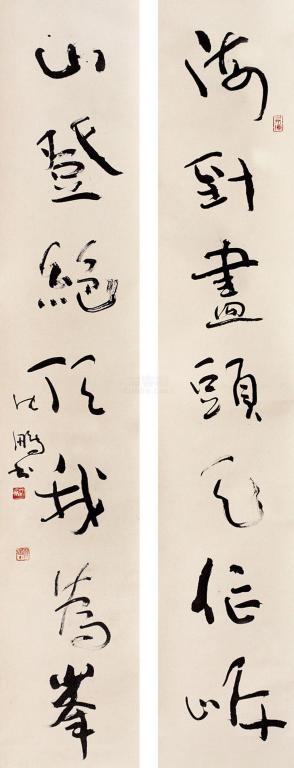 海到盡頭天作岸
山登絕頂我為峯
沈鵬書